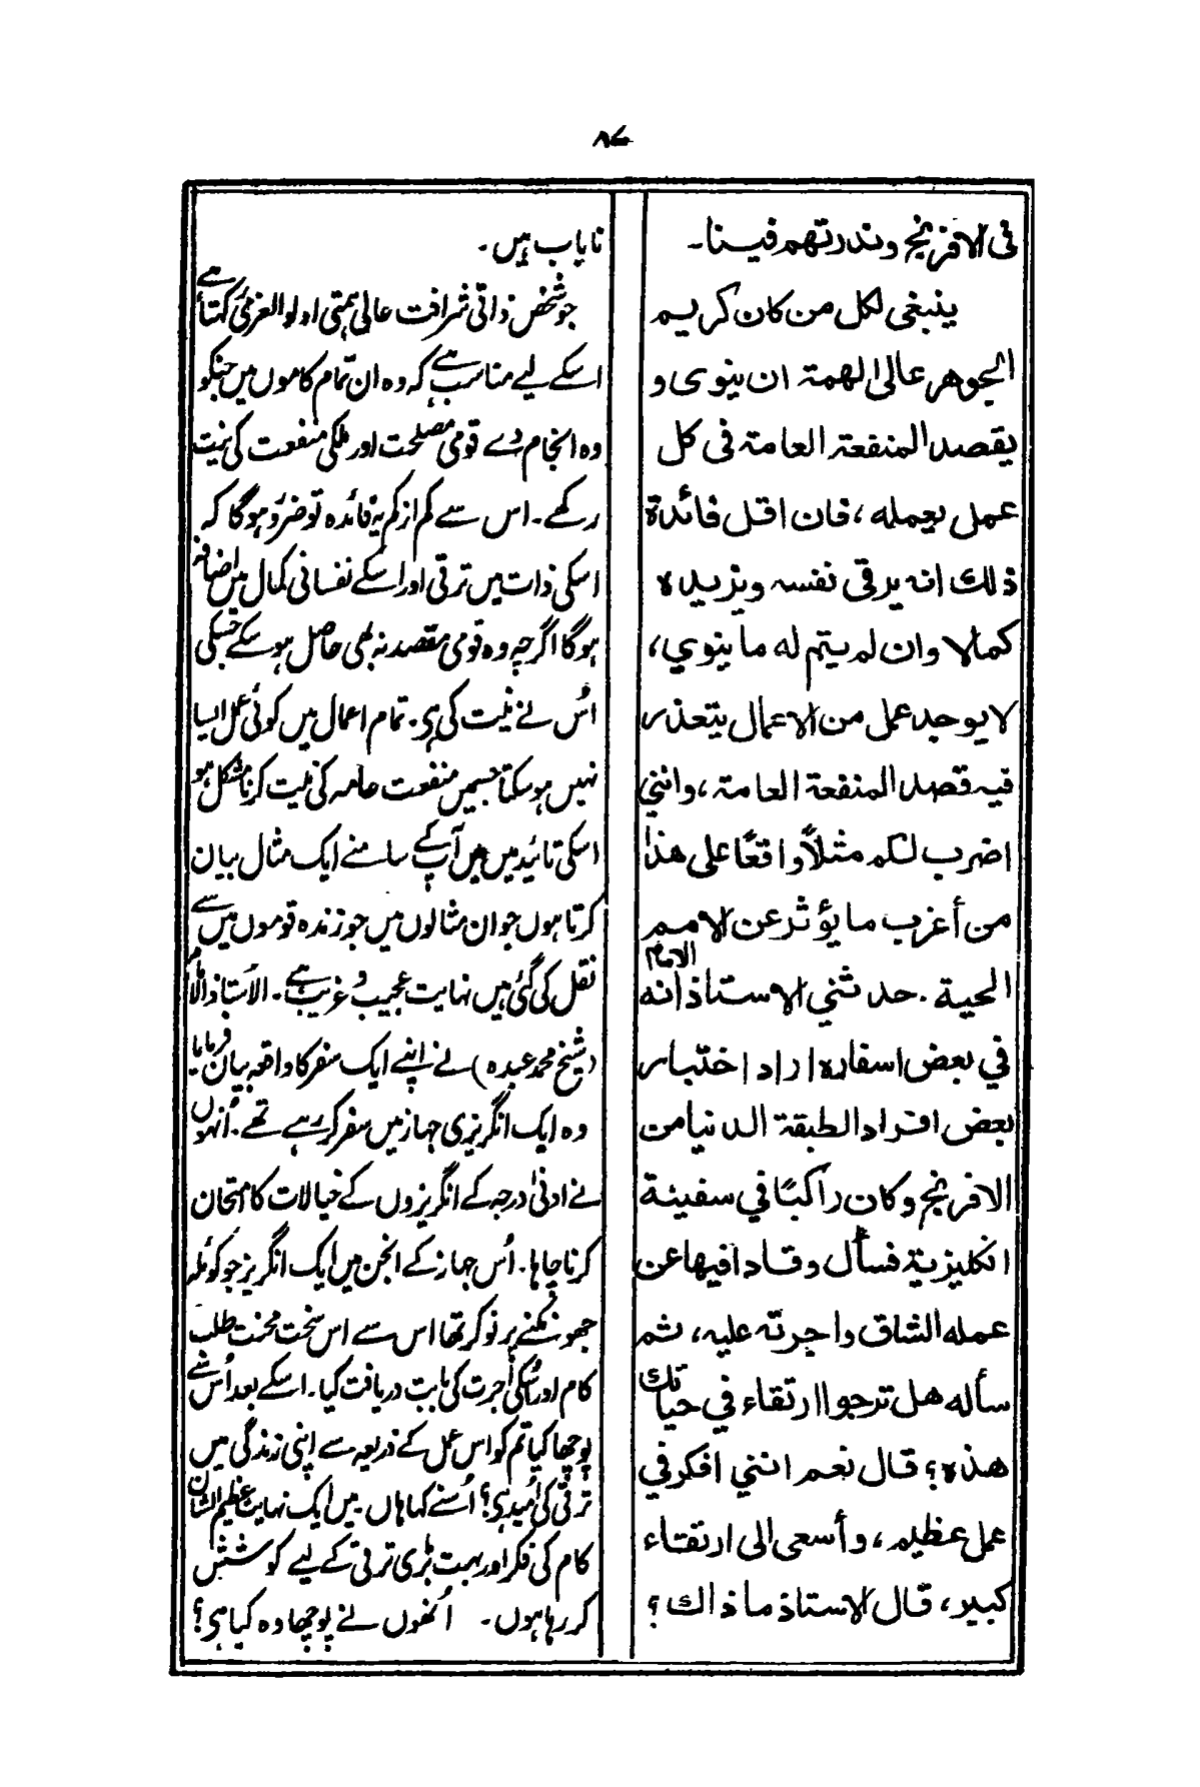 ۸۷
فی الافرنج وندرتهم فینا۔
ینبغی لکل من کان کریم
الجوهر عالی الهمة ان ینوی و
یقصد المنفعة العامة فی کل
عمل یعمله، فان اقل فائدة
ذلك انه یرقی نفسه ویزیده
کمالا وان لم یتم له ما ینوي،
لا یوجد عمل من الاعمال یتعذر
فیه قصد المنفعة العامة، وانني
اضرب لکم مثلاً واقعًا علی هذا
من أغرب ما یؤثر عن الامم
الحیة. حدثني الاستاذ الامام انه
في بعض اسفاره اراد اختبار
بعض افراد الطبقة الدنیا من
الافرنج وکان راکبًا في سفینة
انکلیزیة فسأل وقادا فیها عن
عمله الشاق واجرته علیه، ثم
سأله هل ترجو ارتقاء في حیاتك
هذه؟ قال نعم اننی افکر في
عمل عظیم، وأسعی الی ارتقاء
کبیر، قال الاستاذ ما ذالك؟
نایاب ہیں۔
جو شخص ذاتی شرافت عالی ہمتی اولوالعزمی رکھتا ہے
اسکے لیے مناسب ہے کہ وہ ان تمام کاموں میں جنکو
وہ انجام دے قومی مصلحت اور ملکی منفعت کی نیت
رکھے۔ اس سے کم از کم یہ فائدہ تو ضرور ہوگا کہ
اسکی ذات میں ترقی اور اسکے نفسانی کمال میں اضافہ
ہوگا اگرچہ وہ قومی مقصد نہ بھی حاصل ہوسکے جسکی
اُس نے نیت کی ہی۔ تمام اعمال میں کوئی عمل ایسا
نہیں ہوسکتا جسمیں منفعت عامہ کی نیت کرنا مشکل ہو
اسکی تائید میں میں آپ کے سامنے ایک مثال بیان
کرتا ہوں جو ان مثالوں میں جو زندہ قوموں میں سے
نقل کی گئی ہیں نہایت عجیب و غریب ہے۔ الاستاذ الامام
(شیخ محمد عبدہ) نے اپنے ایک سفر کا واقعہ بیان فرمایا
وہ ایک انگریزی جہاز میں سفر کر رہے تھے۔ اُنہوں
نے ادنیٰ درجہ کے انگریزوں کے خیالات کا امتحان
کرنا چاہا۔ اُس جہاز کے انجن میں ایک انگریز جو کوئلہ
جھونکنے پر نوکر تھا اس سے اس سخت محنت طلب
کام اور اُسکی اُجرت کی بابت دریافت کیا۔ اسکے بعد اُس سے
پوچھا کیا تم کو اس عمل کے ذریعہ سے اپنی زندگی میں
ترقی کی اُمید ہی؟ اُسنے کہا ہاں۔ میں ایک نہایت عظیم الشان
کام کی فکر اور بہت بڑی ترقی کے لیے کوشش
کر رہا ہوں۔ اُنھوں نے پوچھا وہ کیا ہی؟